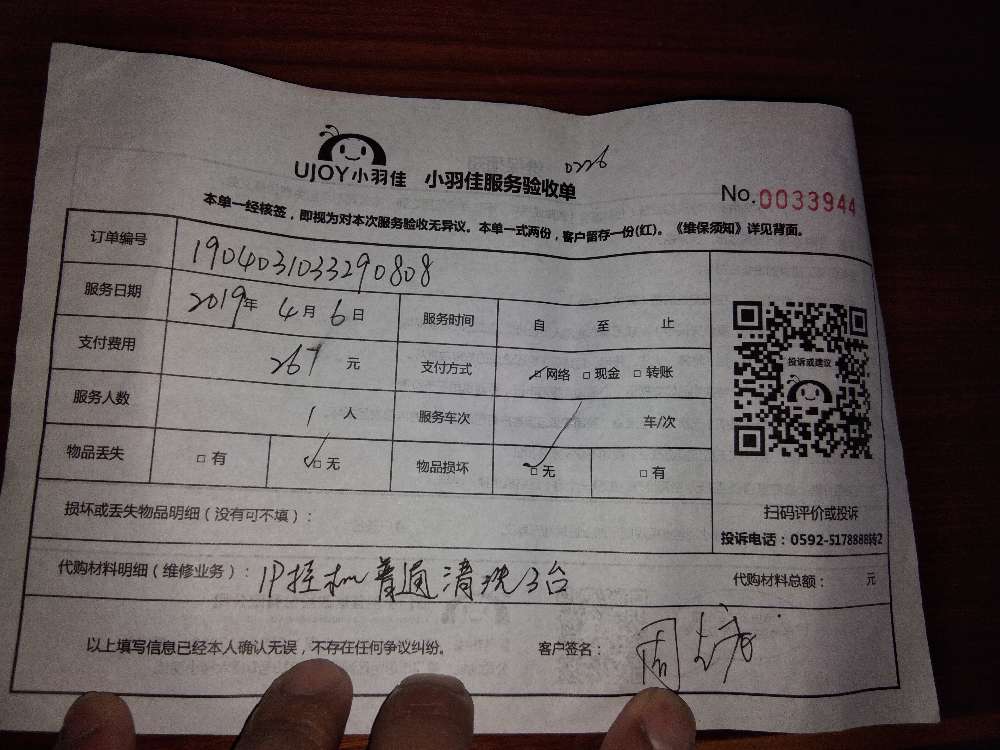 UJOY小羽佳 小羽佳服务验收单 0226
No.0033944
本单一经核签，即视为对本次服务验收无异议。本单一式两份，客户留存一份(红)。《维保须知》详见背面。
订单编号 1904031033290808
服务日期 2019年 4月 6日 服务时间 自 至 止
支付费用 267 元 支付方式 ☑网络 □现金 □转账
服务人数 1 人 服务车次 车/次
物品丢失 □有 ☑无 物品损坏 ☑无 □有
投诉或建议
扫码评价或投诉
投诉电话：0592-5178888转2
损坏或丢失物品明细（没有可不填）：
代购材料明细（维修业务）：1P挂机普通清洗3台 代购材料总额： 元
以上填写信息已经本人确认无误，不存在任何争议纠纷。 客户签名：周